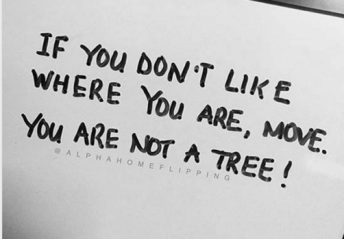 IF YOU DON'T LIKE
WHERE YOU ARE, MOVE.
YOU ARE NOT A TREE!
@ALPHAHOMEFLIPPING